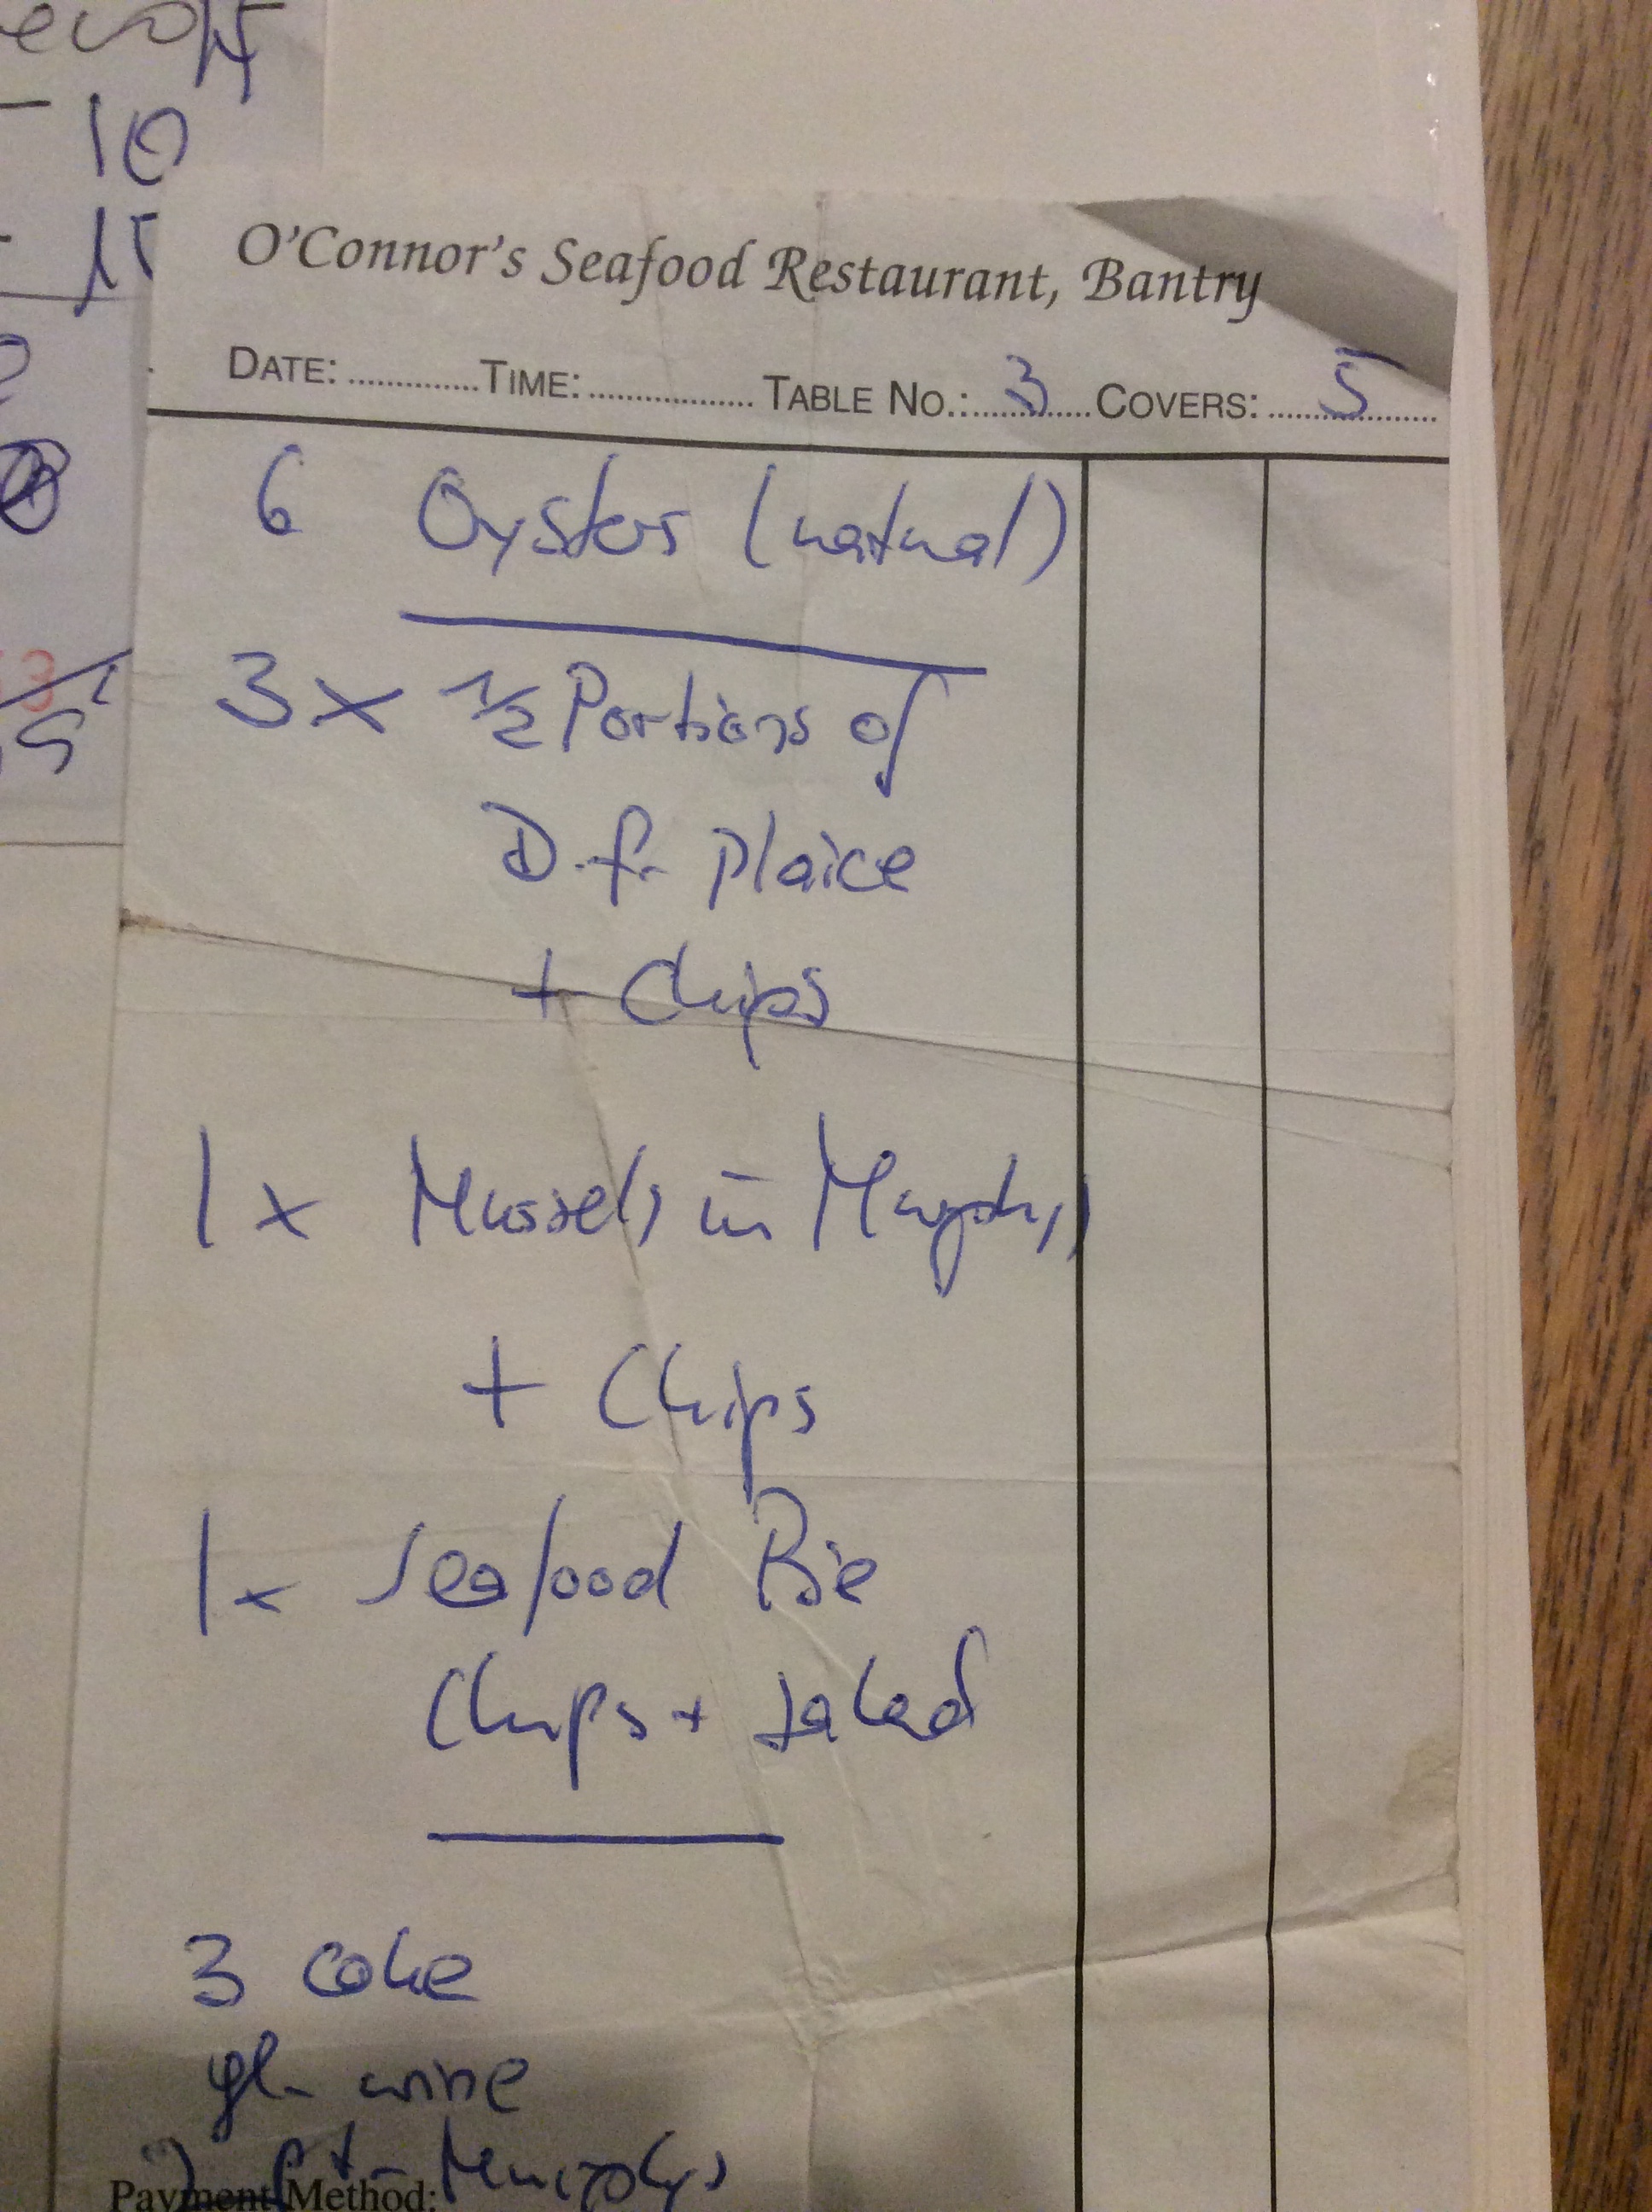 10
O'Connor's Seafood Restaurant, Bantry
DATE: ..............TIME:................. TABLE NO.:....3....COVERS: .....5.....
6 Oysters (natural)
3 x 1/2 Portions of
D.f. plaice
+ Chips
1 x Mussels in Murphys
+ Chips
1x Seafood Pie
Chips + salad
3 coke
gl. wine
Murphys
Payment Method: